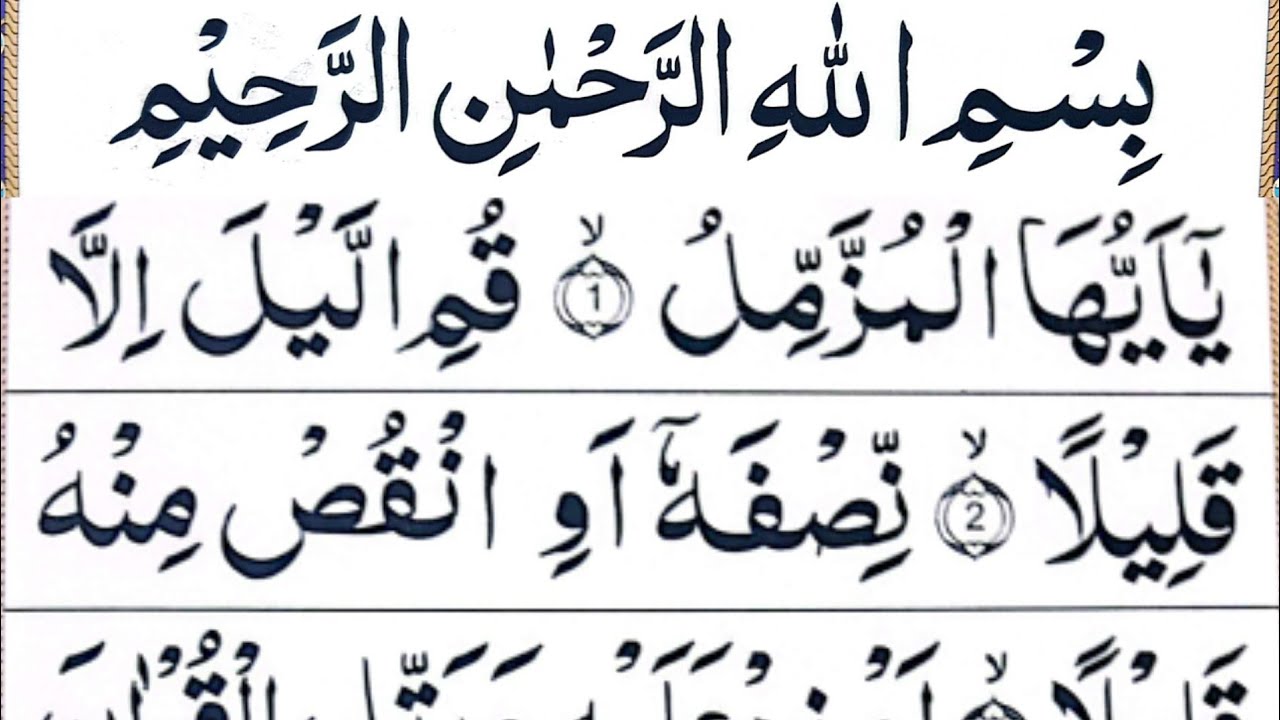 بِسْمِ اللّٰهِ الرَّحْمٰنِ الرَّحِيْمِ
يٰۤاَيُّهَا الْمُزَّمِّلُ ۙ 1 قُمِ الَّيْلَ اِلَّا
قَلِيْلًا ۙ 2 نِّصْفَهٗۤ اَوِ انْقُصْ مِنْهُ
قَلِيْلًا ۙ اَوْ زِدْ عَلَيْهِ وَرَتِّلِ الْقُرْاٰنَ